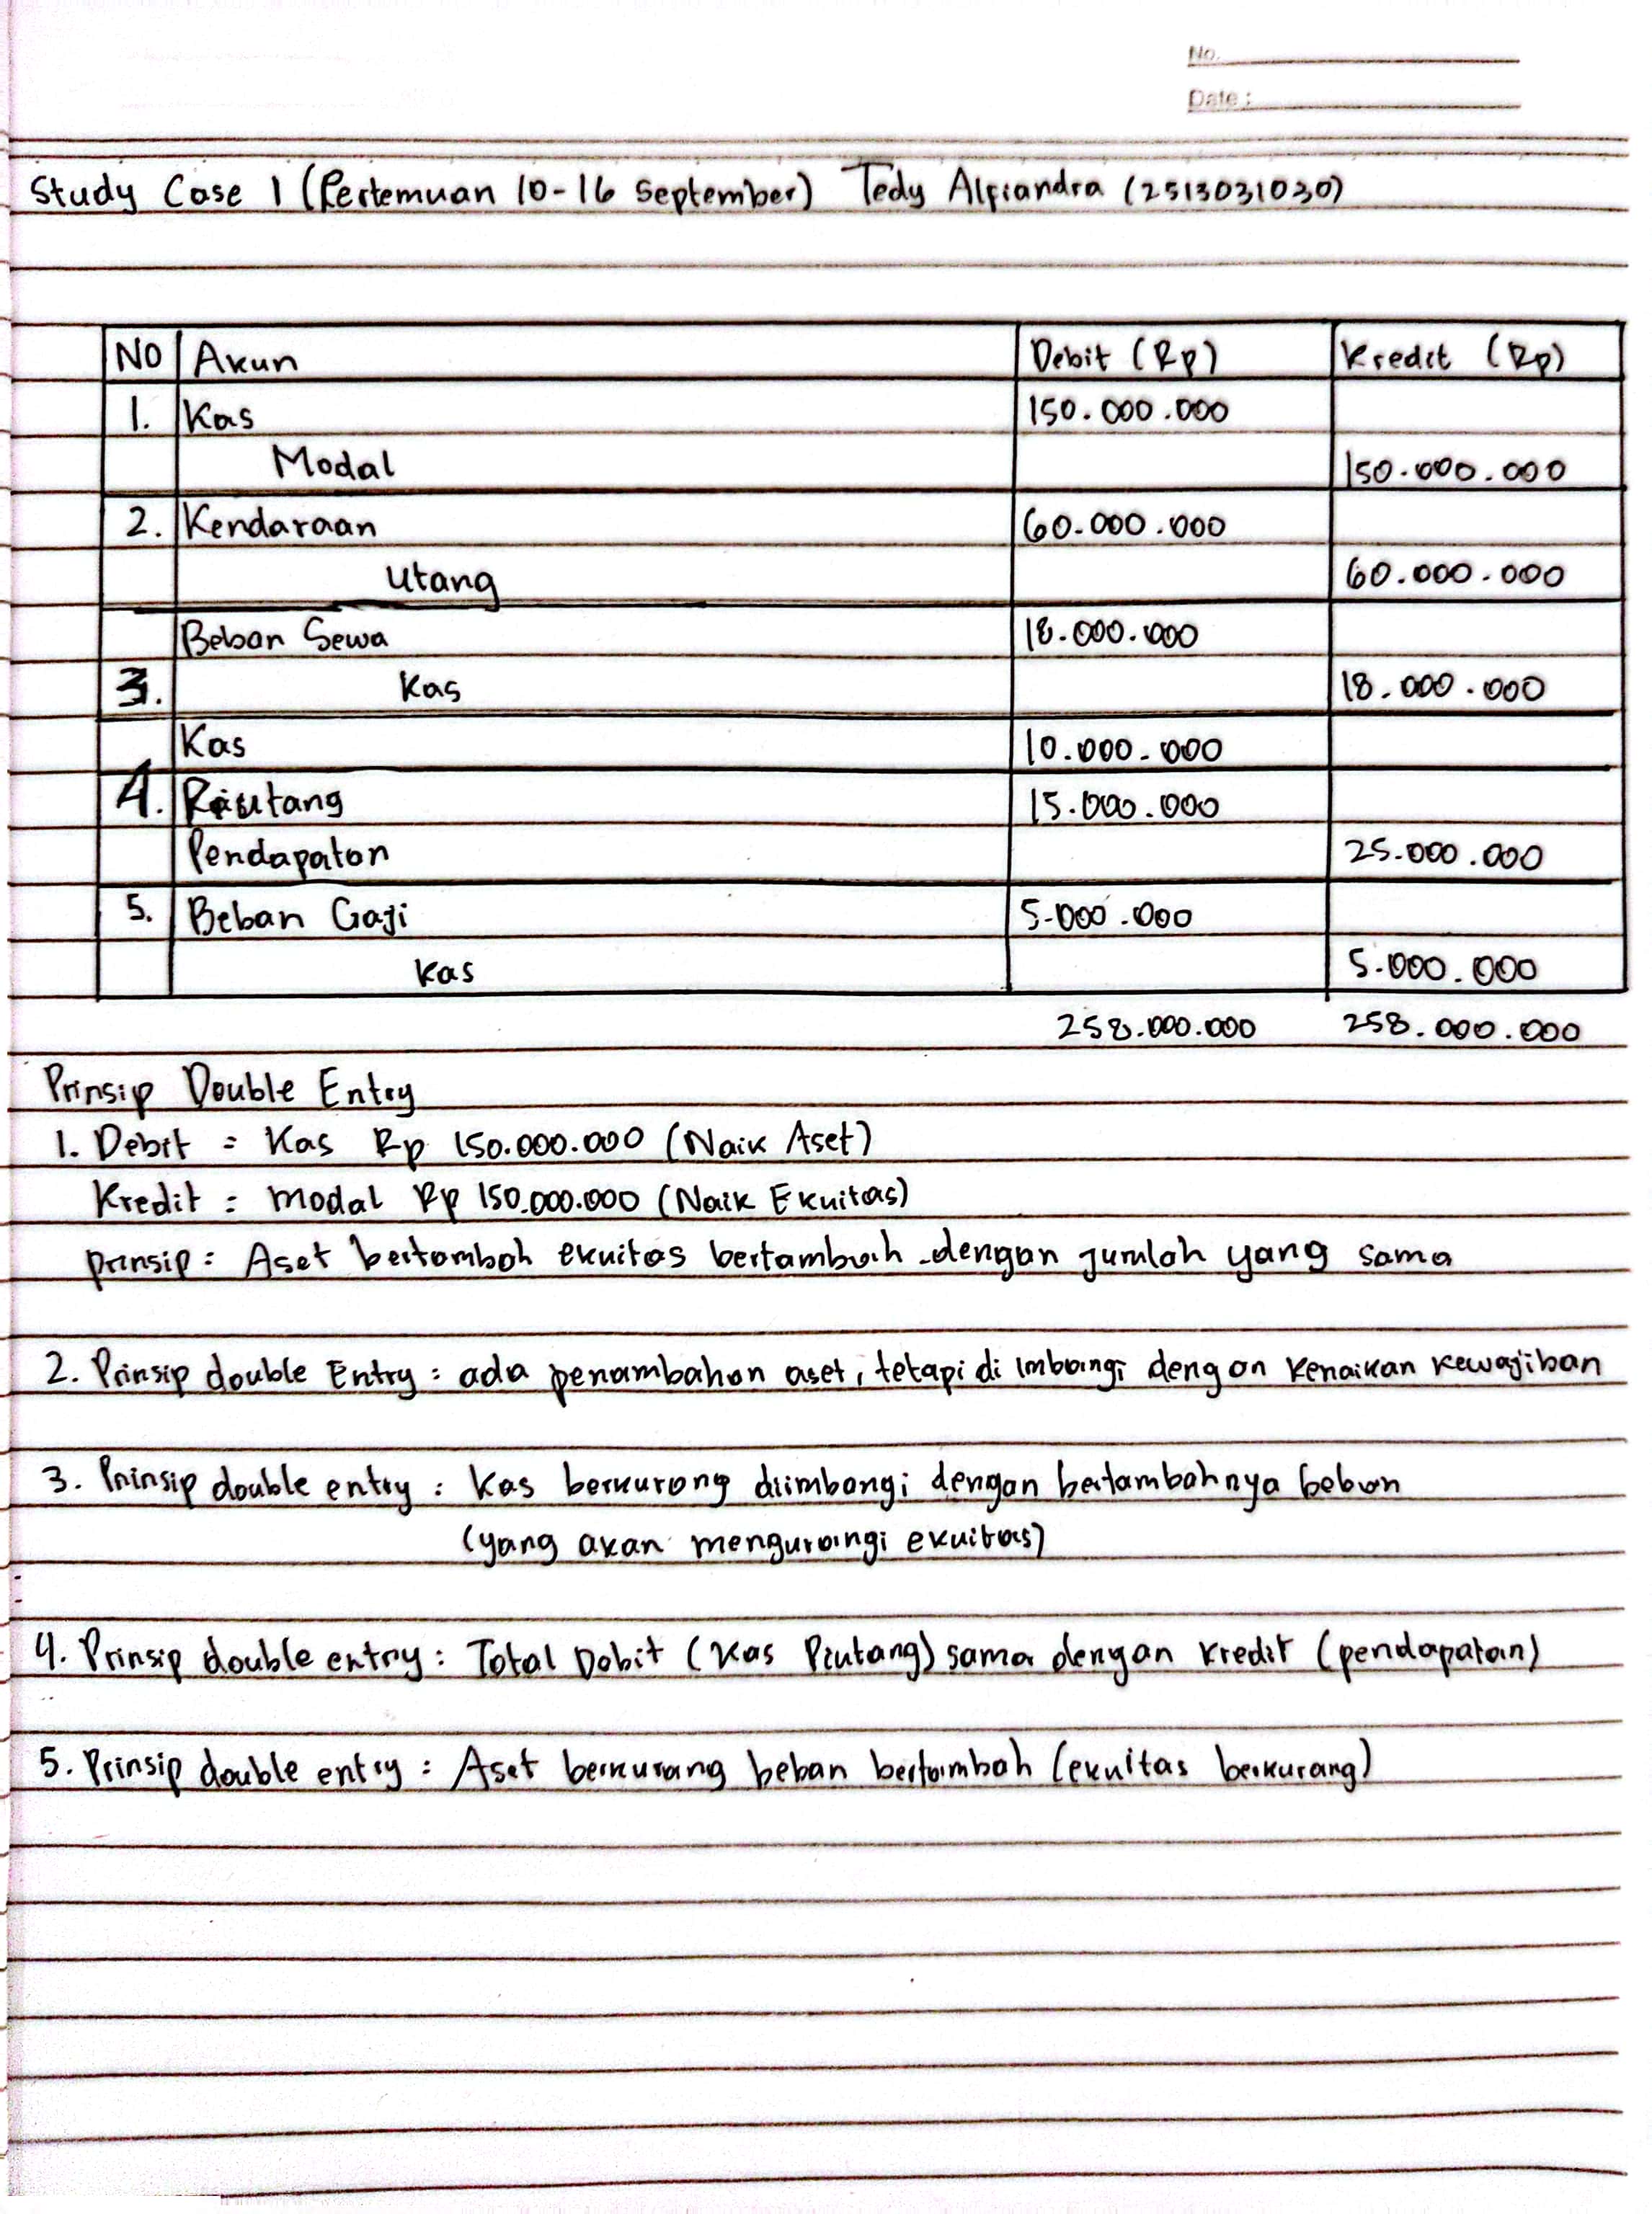 No.
Date :
Study Case 1 (Pertemuan 10-16 September) Tedy Alfiandra (2513031030)
NO Akun Debit (Rp) Kredit (Rp)
1. Kas 150.000.000
Modal 150.000.000
2. Kendaraan 60.000.000
Utang 60.000.000
Beban Sewa 18.000.000
3. Kas 18.000.000
Kas 10.000.000
4. Piutang 15.000.000
Pendapatan 25.000.000
5. Beban Gaji 5.000.000
Kas 5.000.000
258.000.000 258.000.000
Prinsip Double Entry
1. Debit = Kas Rp 150.000.000 (Naik Aset)
Kredit = Modal Rp 150.000.000 (Naik Ekuitas)
prinsip : Aset bertambah ekuitas bertambah dengan jumlah yang sama
2. Prinsip double Entry : ada penambahan aset, tetapi di imbangi dengan kenaikan kewajiban
3. Prinsip double entry : Kas berkurang diimbangi dengan bertambahnya beban
(yang akan mengurangi ekuitas)
4. Prinsip double entry : Total Dobit (Kas Piutang) sama dengan kredit (pendapatan)
5. Prinsip double entry : Aset berkurang beban bertambah (ekuitas berkurang)